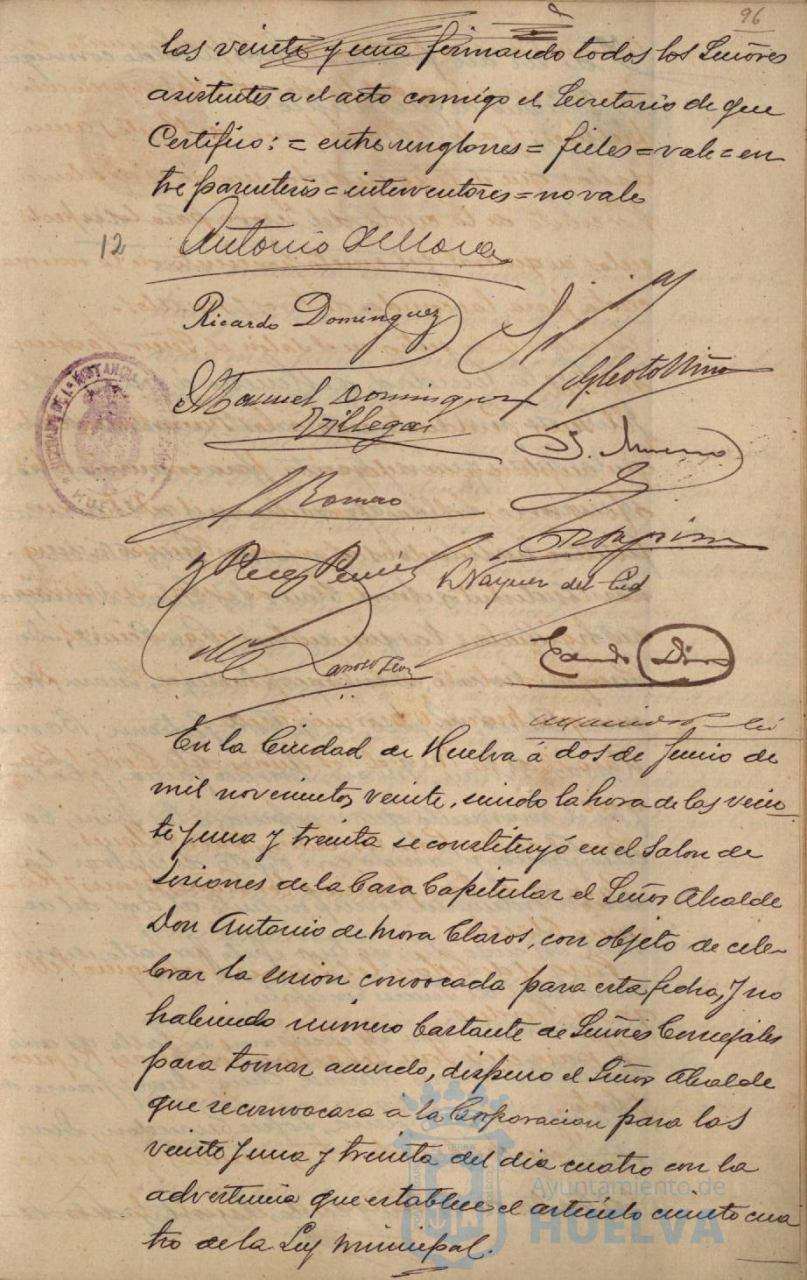 96
las veinte y una firmando todos los Señores
asistentes a el acto conmigo el Secretario de que
Certifico: = entre renglones = fieles = vale = en
tre parentesis = interventores = no vale
12
Antonio de Mora
Ricardo Dominguez
Manuel Dominguez
Villegas
J. Moreno
J Romero
J Perez
Vazquez del Cid
HUELVA
En la Ciudad de Huelva á dos de Junio de
mil novecientos veinte, siendo la hora de las vein
te y una y treinta se constituyó en el Salon de
Sesiones de la Casa Capitular el Señor Alcalde
Don Antonio de Mora Claros, con objeto de cele-
brar la sesion convocada para esta fecha, y no
habiendo número bastante de Señores Concejales
para tomar acuerdo, dispuso el Señor Alcalde
que se convocara a la Corporacion para las
veinte y una y treinta del dia cuatro con la
advertencia que establece el articulo ciento cua
tro de la Ley Municipal.
Ayuntamiento de
HUELVA